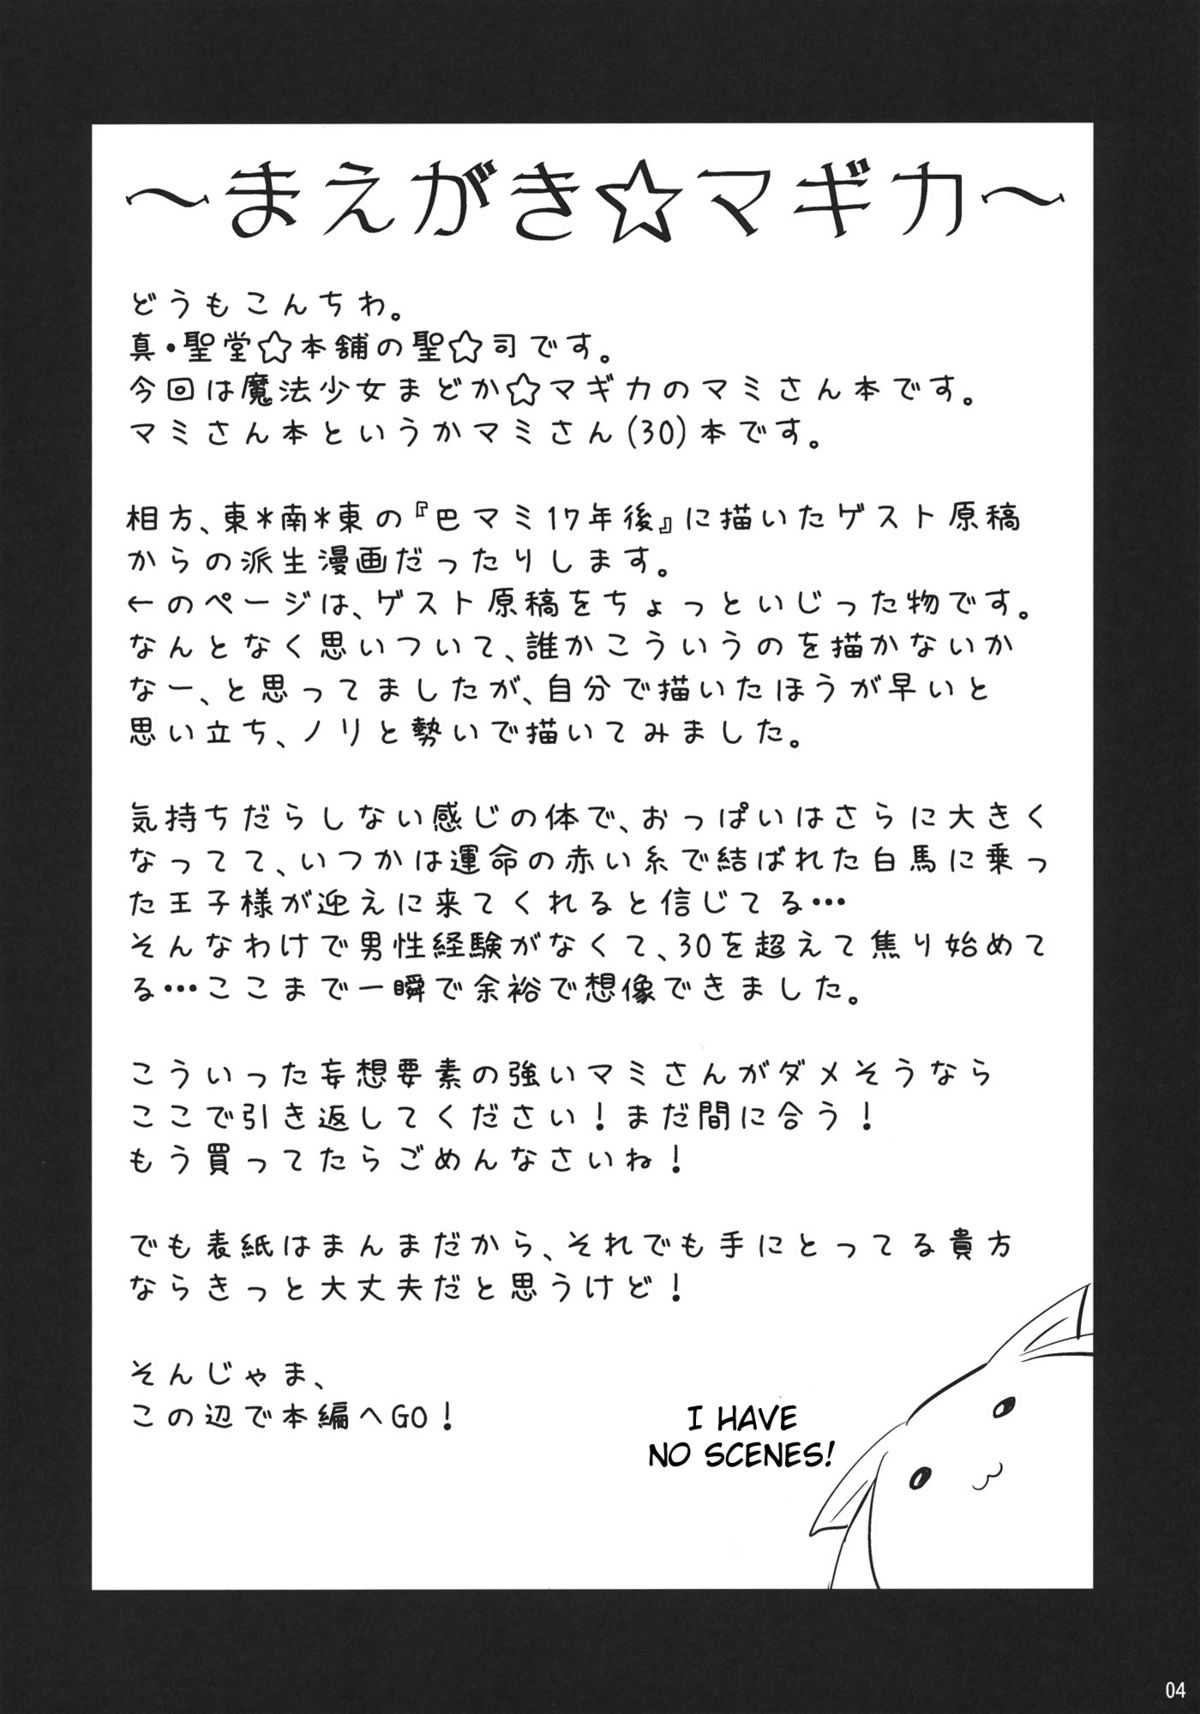 ～まえがき☆マギカ～
どうもこんちわ。
真・聖堂☆本舗の聖☆司です。
今回は魔法少女まどか☆マギカのマミさん本です。
マミさん本というかマミさん(30)本です。
相方、東*南*東の『巴マミ17年後』に描いたゲスト原稿
からの派生漫画だったりします。
←のページは、ゲスト原稿をちょっといじった物です。
なんとなく思いついて、誰かこういうのを描かないか
なー、と思ってましたが、自分で描いたほうが早いと
思い立ち、ノリと勢いで描いてみました。
気持ちだらしない感じの体で、おっぱいはさらに大きく
なってて、いつかは運命の赤い糸で結ばれた白馬に乗っ
た王子様が迎えに来てくれると信じてる・・・
そんなわけで男性経験がなくて、30を超えて焦り始めて
る・・・ここまで一瞬で余裕で想像できました。
こういった妄想要素の強いマミさんがダメそうなら
ここで引き返してください！まだ間に合う！
もう買ってたらごめんなさいね！
でも表紙はまんまだから、それでも手にとってる貴方
ならきっと大丈夫だと思うけど！
そんじゃま、
この辺で本編へGO！
I HAVE
NO SCENES!
04